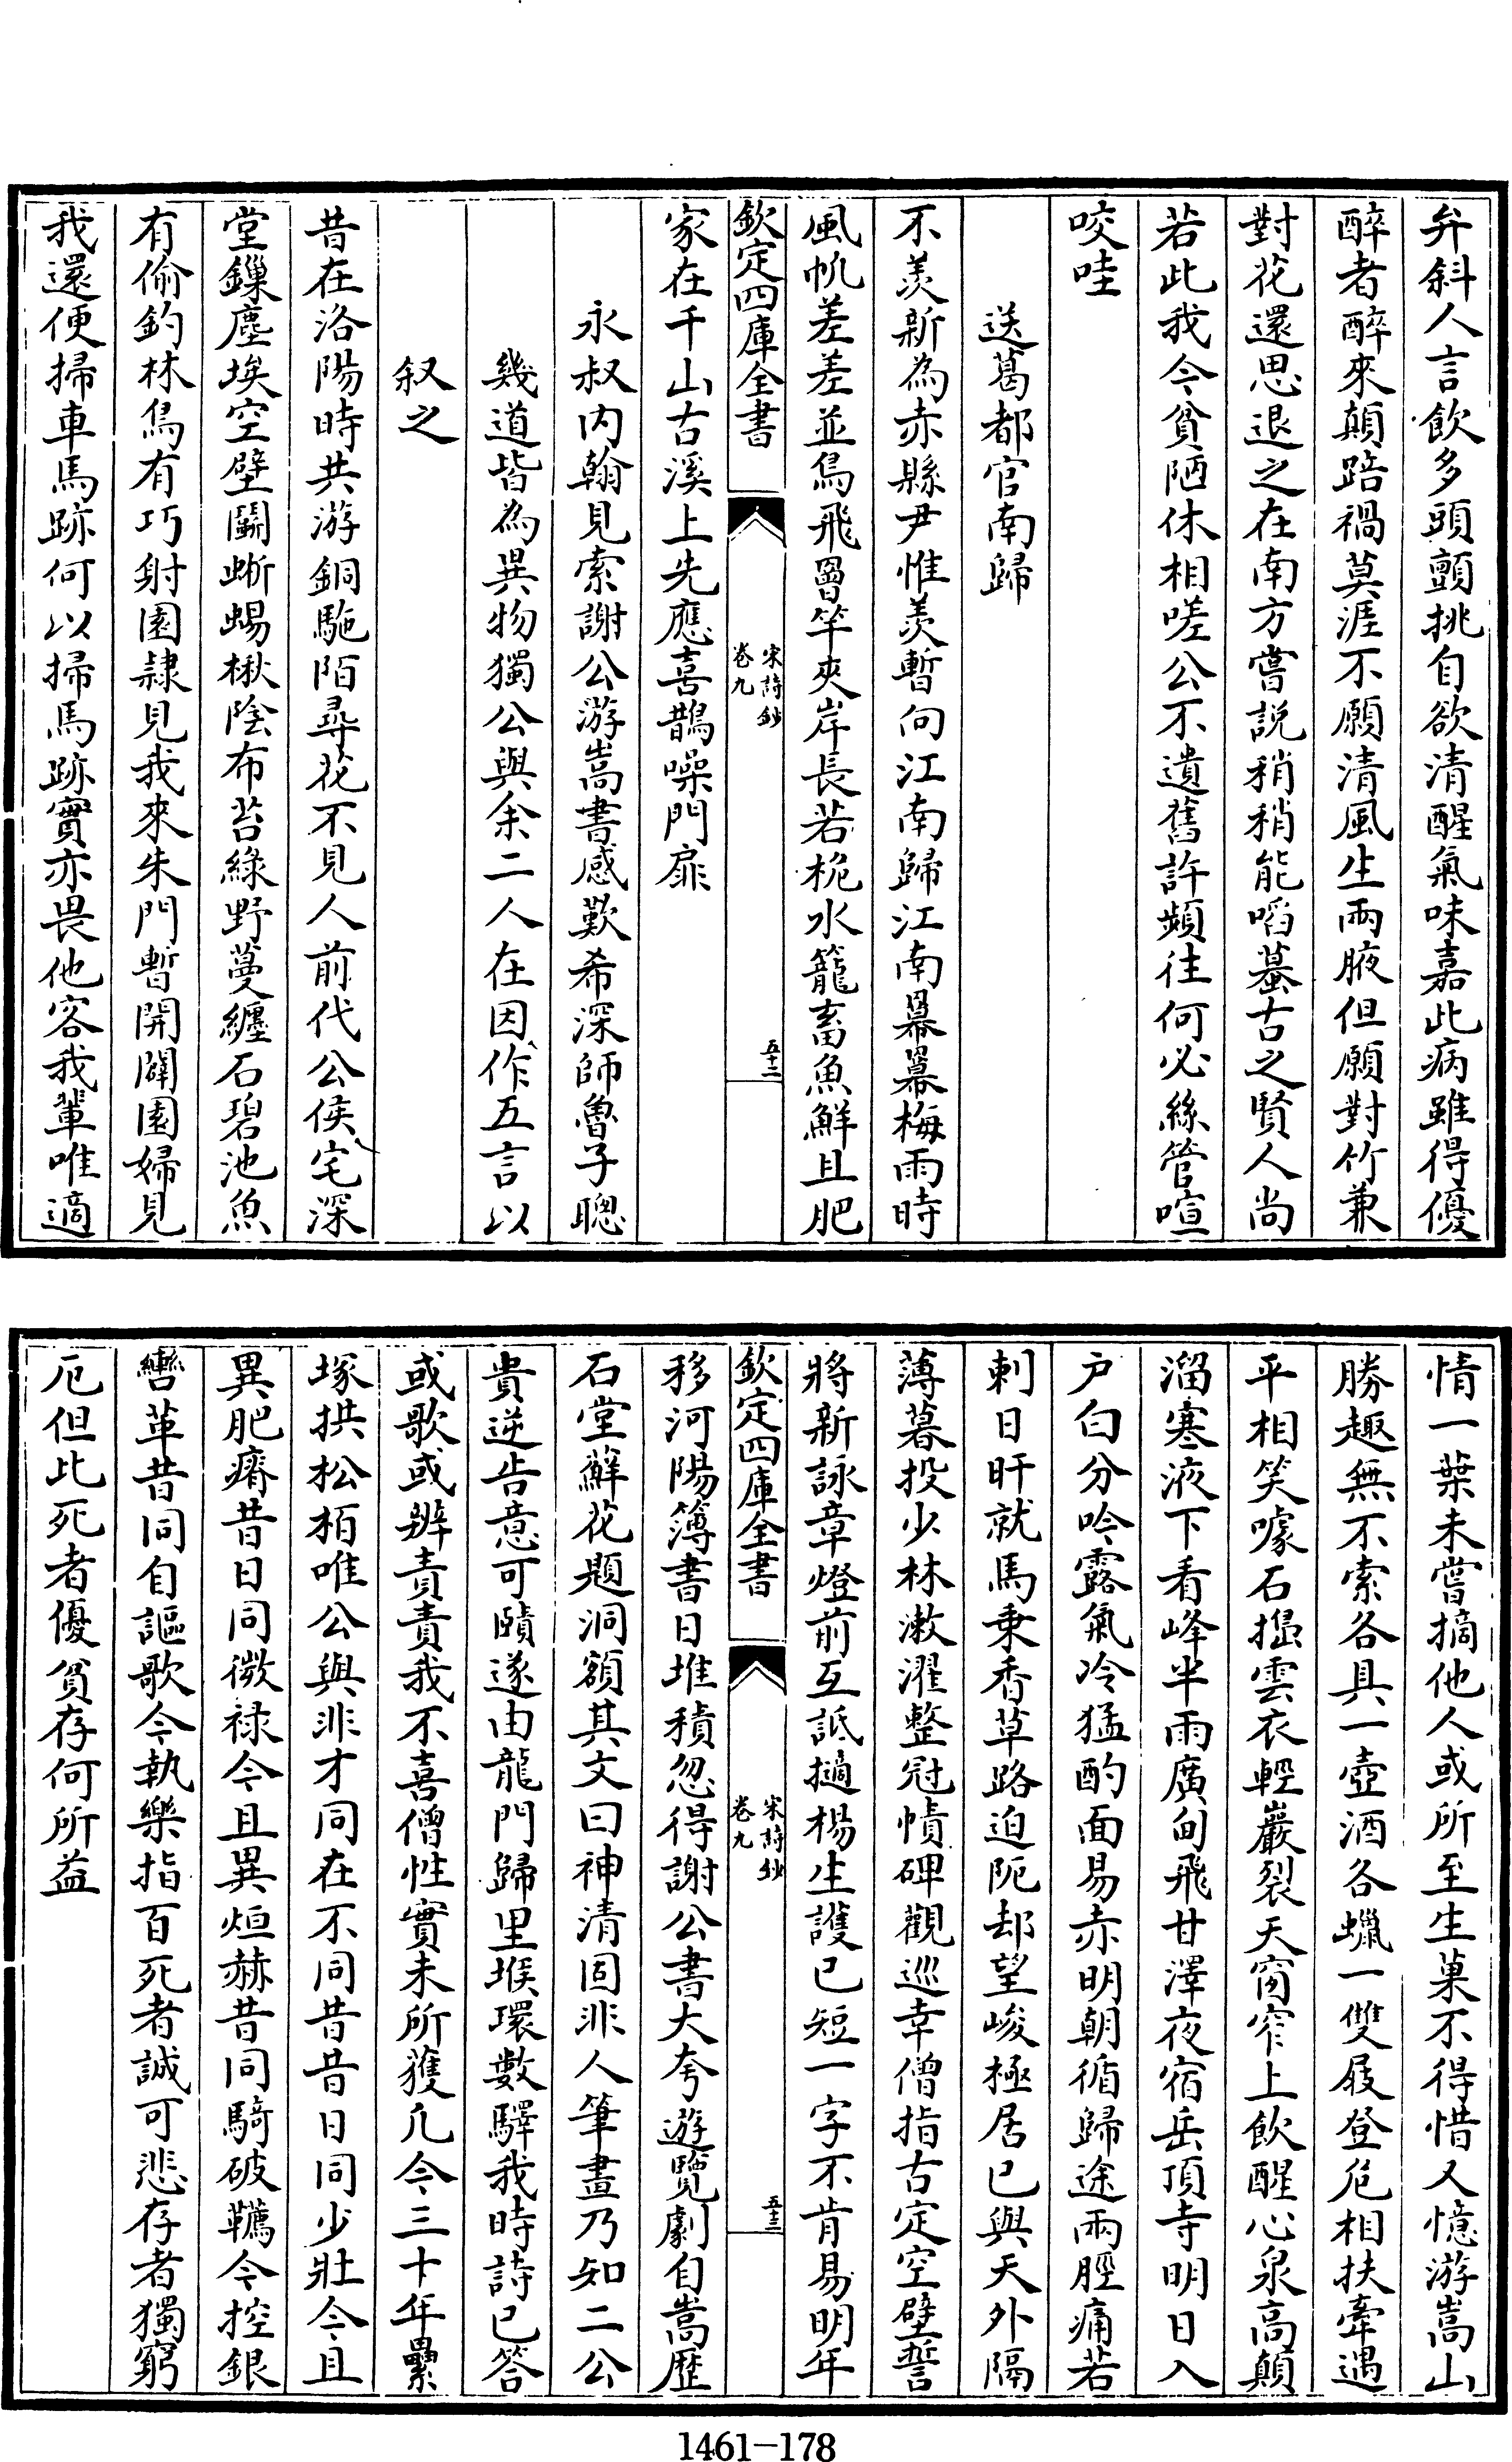 弁斜人言飲多頭顫挑自欲清醒氣味嘉此病雖得優
醉者醉來顛踣禍莫涯不願清風生兩腋但願對竹兼
對花還思退之在南方嘗説稍稍能啗蟇古之賢人尚
若此我今貧陋休相嗟公不遺舊許頻往何必絲管喧
咬哇
送葛都官南歸
不羨新為赤縣尹惟羨暫向江南歸江南羃羃梅雨時
風帆差差並鳥飛罾竿夾岸長若桅水籠畜魚鮮且肥
欽定四庫全書
宋詩鈔
卷九
五十二
家在千山古溪上先應喜鵲噪門扉
永叔内翰見索謝公游嵩書感歎希深師魯子聰
幾道皆為異物獨公與余二人在因作五言以
叙之
昔在洛陽時共游銅駞陌尋花不見人前代公侯宅深
堂鏁塵埃空壁鬬蜥蜴楸陰布苔綠野蔓纏石碧池魚
有偷釣林鳥有巧射園隷見我來朱門暫開闢園婦見
我還便掃車馬跡何以掃馬跡實亦畏他客我輩唯適
情一葉未嘗摘他人或所至生菓不得惜又憶游嵩山
勝趣無不索各具一壺酒各蠟一雙屐登危相扶牽遇
平相笑噱石搵雲衣輕巖裂天窗窄上飲醒心泉高顛
溜寒液下看峰半雨廣甸飛甘澤夜宿岳頂寺明日入
户白分吟露氣冷猛酌面易赤明朝循歸途兩脛痛若
刺日旰就馬乗香草路迫阨却望峻極居已與天外隔
薄暮投少林漱濯整冠幘碑觀巡幸僧指古定空壁誓
將新詠章燈前互詆擿楊生護已短一字不肯易明年
欽定四庫全書
宋詩鈔
卷九
五十三
移河陽簿書日堆積忽得謝公書大夸遊覽劇自嵩歴
石堂蘚花題洞額其文曰神清固非人筆畫乃知二公
貴逆告意可賾遂由龍門歸里堠環數驛我時詩已答
或歌或辨責責我不喜僧性實未所獲凢今三十年纍
塚拱松栢唯公與非才同在不同昔昔日同少壯今且
異肥瘠昔日同微禄今且異烜赫昔同騎破韉今控銀
轡革昔同自謳歌今執樂指百死者誠可悲存者獨窮
厄但比死者優貧存何所益
1461—178